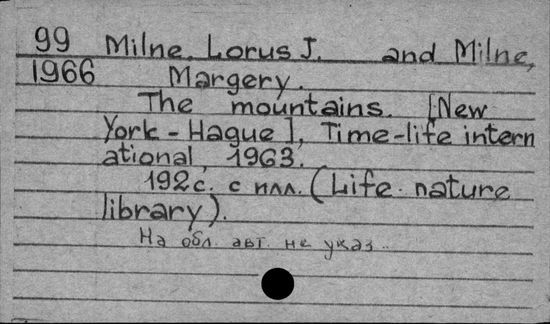 99 Milne, Lorus J. and Milne,
1966 Margery.
The mountains. [New
York-Hague], Time-life intern
ational, 1963.
192с. с илл. (Life nature
library).
На обл. авт. не указ..